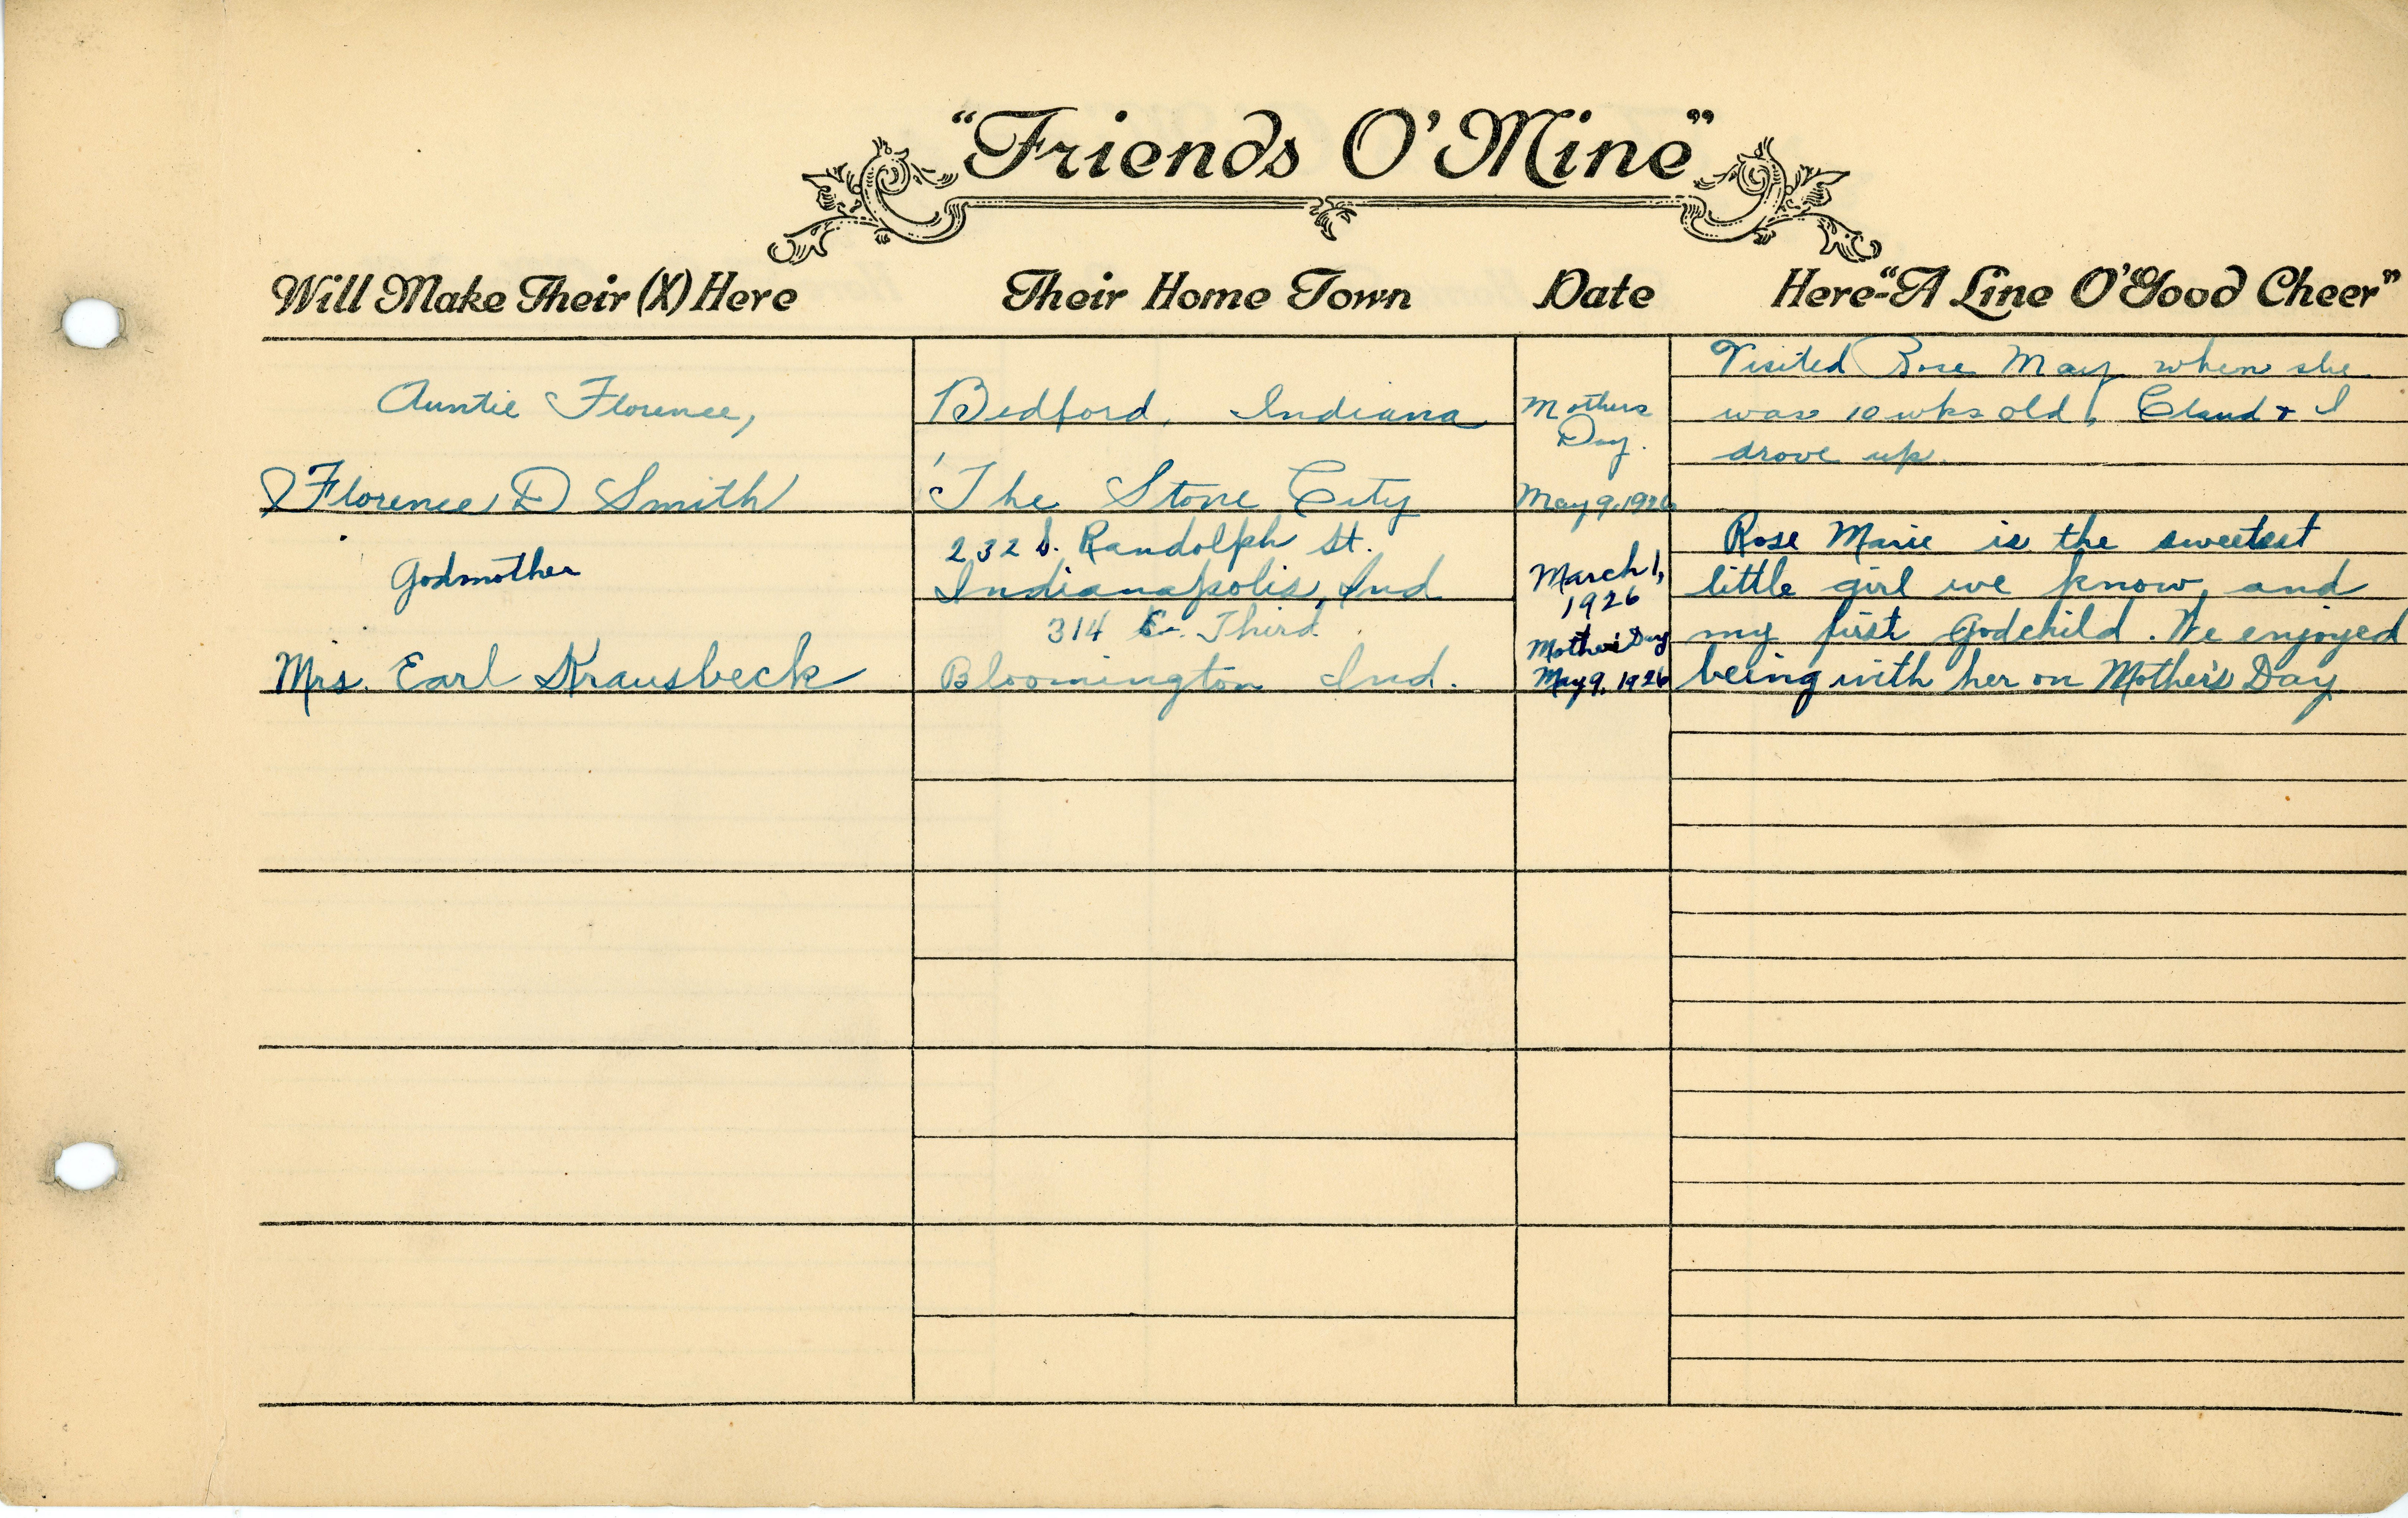 "Friends O' Mine"
Will Make Their (X) Here Their Home Town Date Here-"A Line O' Good Cheer"
Auntie Florence,
Florence D Smith
Bedford, Indiana
The Stone City
Mothers
Day.
May 9, 1926
Visited Rose May when she
was 10 wks old, Claud + I
drove up.
Godmother
Mrs. Earl Krausbeck
232 S. Randolph St.
Indianapolis, Ind
314 E. Third
Bloomington Ind.
March 1,
1926
Mother's Day
May 9, 1926
Rose Marie is the sweetest
little girl we know, and
my first Godchild. We enjoyed
being with her on Mother's Day